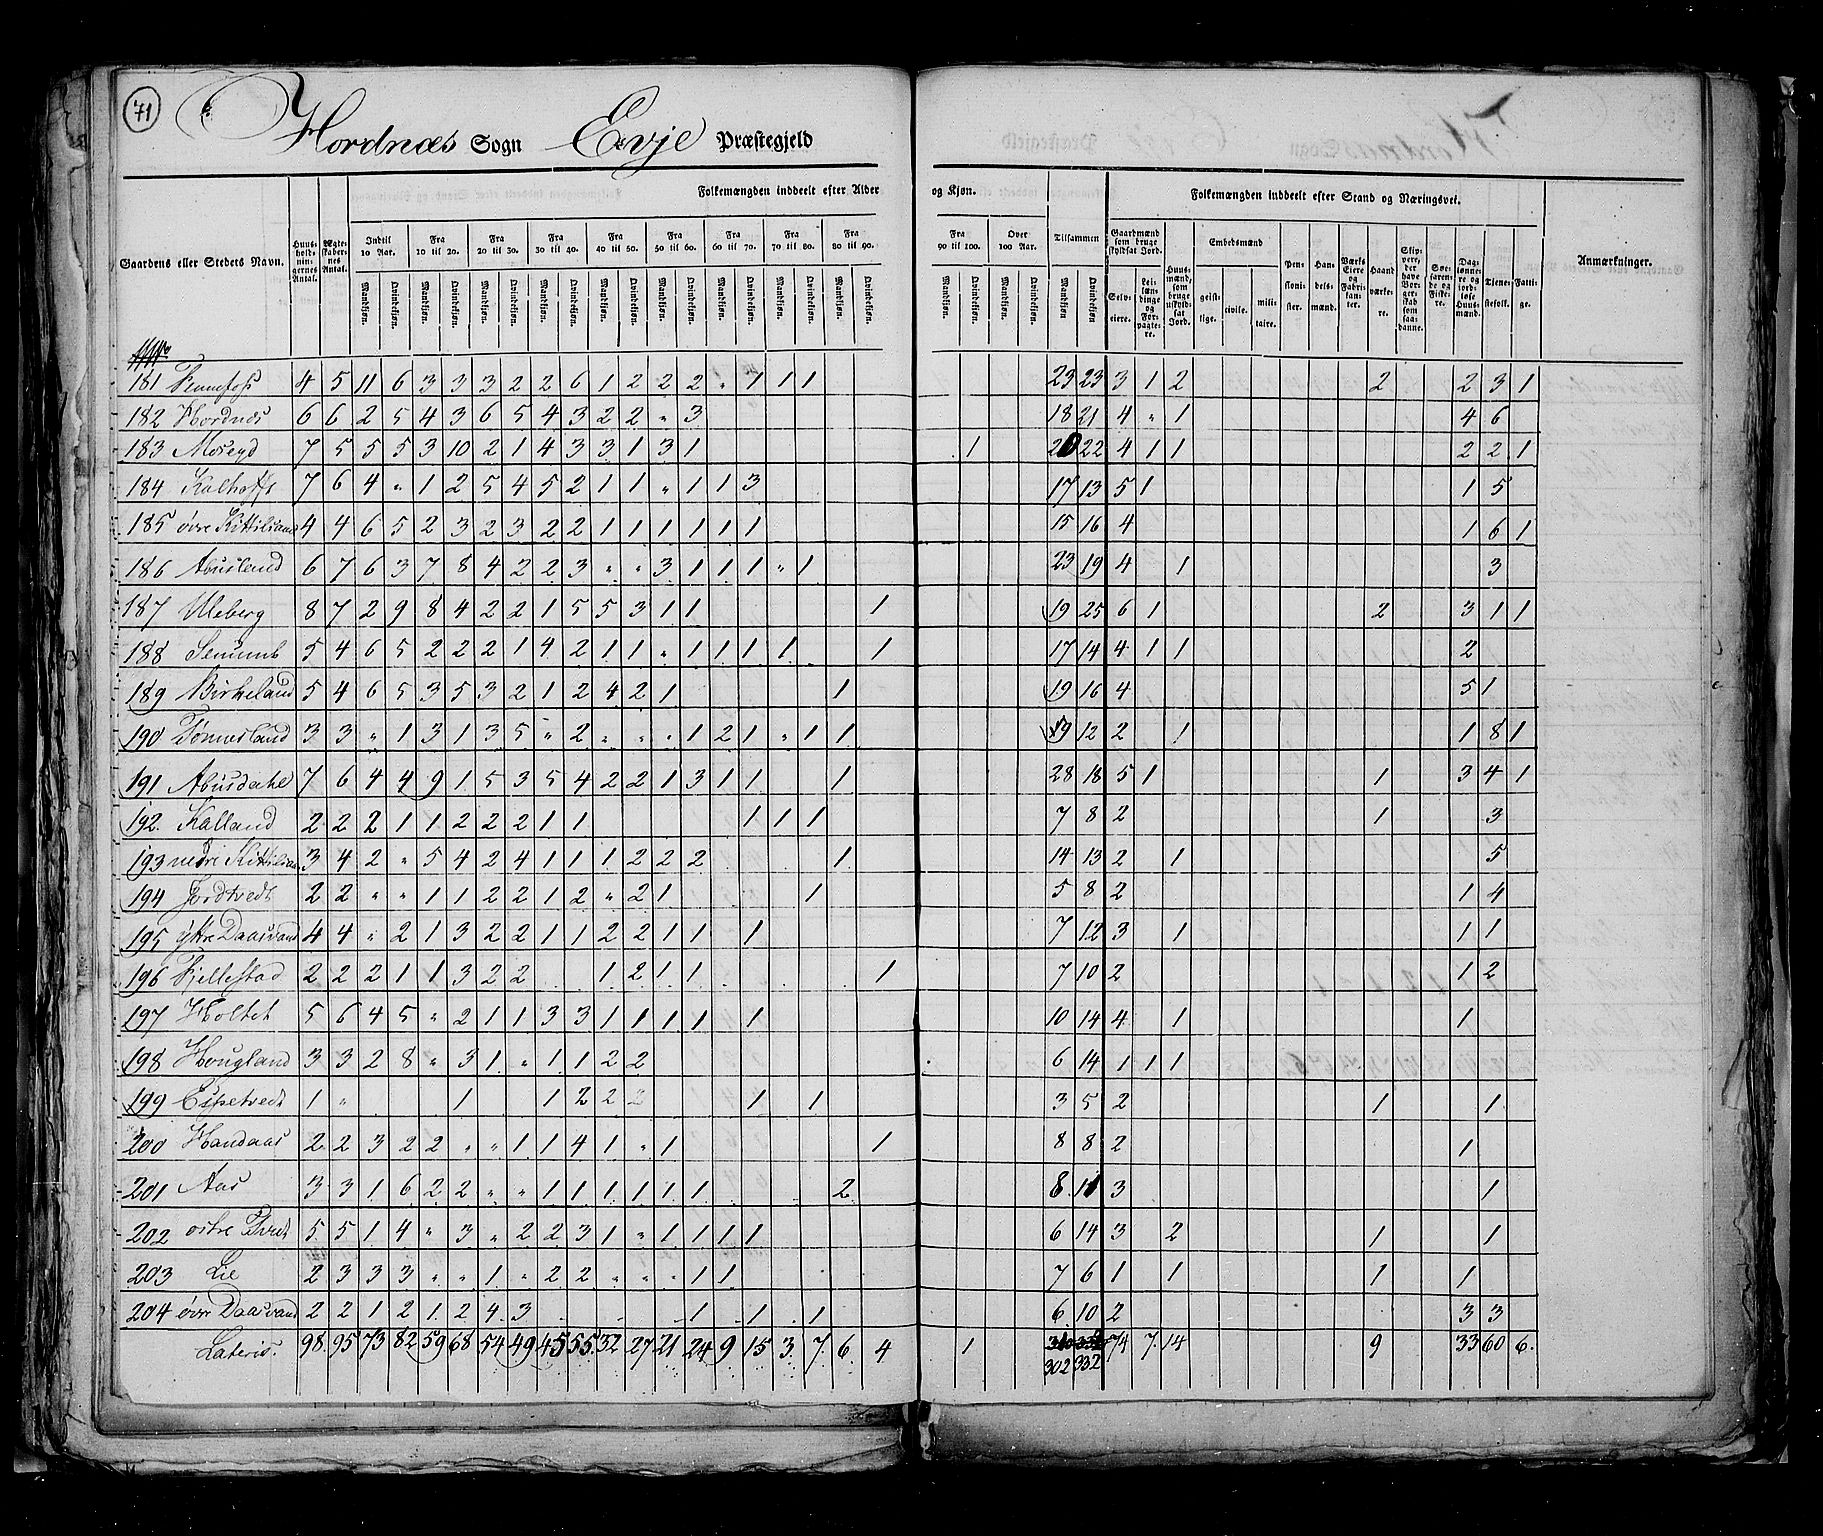 71
Hordnæs Sogn Evje Præstegjeld
Gaardens eller Stedets Navn. Huusholdningernes Antal. Ægteskabernes Antal. Folkemængden inddeelt efter Alder og Kjøn. Tilsammen Folkemængden inddeelt efter Stand og Næringsvei. Anmærkninger.
Indtil 10 Aar. Fra 10 til 20. Fra 20 til 30. Fra 30 til 40. Fra 40 til 50. Fra 50 til 60. Fra 60 til 70. Fra 70 til 80. Fra 80 til 90. Fra 90 til 100. Over 100 Aar.
Mandkjøn. Qvindekjøn. Mandkjøn. Qvindekjøn. Mandkjøn. Qvindekjøn. Mandkjøn. Qvindekjøn. Mandkjøn. Qvindekjøn. Mandkjøn. Qvindekjøn. Mandkjøn. Qvindekjøn. Mandkjøn. Qvindekjøn. Mandkjøn. Qvindekjøn. Mandkjøn. Qvindekjøn. Mandkjøn. Qvindekjøn. Mandkjøn Qvindekjøn
Gaardmænd som bruge skyldsat Jord. Selveiere. Leilændinge og Forpagtere. Huusmænd, som bruge uskyldsat Jord. Embedsmænd geistlige. civile. militaire. Pensionister. Handelsmænd. Værks Eiere og Fabrikanter. Haandværkere. Skippere, der have Borgerskab som saadanne. Søefarende og Fiskere. Daglønnere og jordløse Huusmænd. Tjenestefolk. Fattige.
181 4 5 11 6 3 3 3 2 2 6 1 2 2 2 " 1 1 1 23 23 3 1 2 2 2 3 1
182 Hordnæs 6 6 2 5 4 3 6 5 4 3 2 2 " 3 18 21 4 " 1 4 6
183 Moseyd 7 5 5 5 3 10 2 1 4 3 3 1 3 1 1 20 22 4 1 1 2 2 1
184 Kalhofft 7 6 4 " 1 2 5 4 5 2 1 1 " 1 1 3 17 13 5 1 1 5
185 øvre Kittilsland 4 4 6 5 2 3 2 3 2 2 1 1 1 1 1 1 15 16 4 1 6 1
186 Abusland 6 7 6 3 7 8 4 2 2 3 " " 3 1 1 1 " 1 23 19 4 1 3
187 Uleberg 8 7 2 9 8 4 2 2 1 5 5 3 1 1 1 19 25 6 1 2 3 1 1
188 Senumb 5 4 6 5 2 2 2 1 4 2 1 1 " 1 1 1 1 1 17 14 4 1 1 2
189 Birkeland 5 4 6 5 3 5 3 2 1 2 4 2 1 1 19 16 4 5 1
190 Tønnesland 3 3 " 1 3 1 3 5 " 2 " " " 1 2 1 " 1 1 9 12 2 1 1 8 1
191 Abusdahl 7 6 4 4 9 1 5 3 5 4 2 2 1 3 1 1 1 28 18 5 1 1 3 4 1
192 Kalland 2 2 2 1 1 2 2 2 1 1 1 1 1 7 8 2 1 3
193 nedre 3 4 2 " 5 4 2 4 1 1 1 2 2 2 1 14 13 2 1 5
194 Jordtvedt 2 2 " " 1 1 2 2 1 2 " 2 1 1 5 8 2 1 4
195 yttre Daasvand 4 4 " 2 1 3 2 2 1 1 2 2 1 1 1 7 12 3 1 1 1
196 Fjellestad 2 2 2 1 1 3 2 2 1 2 1 1 1 7 10 2 1 2
197 Holtet 5 6 4 5 " 2 1 1 3 3 1 1 1 1 1 10 14 4 1 1
198 Hougland 3 3 2 8 " 3 1 " 1 1 2 2 6 14 1 1 1
199 Espetvedt 1 " 1 1 2 2 2 1 1 3 5 2 1 1
200 Handaas 2 2 3 2 2 " " 1 1 4 1 " 1 1 8 8 2 1
201 Aas 3 3 1 6 2 2 " " 1 1 1 1 1 1 2 8 11 3 1
202 østre Tvedt 5 5 1 4 " 3 " 2 2 3 1 " 1 1 1 1 6 14 3 2 1 1
203 Lie 2 3 3 3 " " 1 " 2 2 " " " 1 1 7 6 1 1 1 1
204 øvre Daasvand 2 2 1 2 1 2 4 3 1 1 1 6 10 2 3 3
Lateris. 98. 95 73 82 59 68 54 49 45 55 32 27 21 24 9 15 3 7 6 4 1 74 7 14 9 33 60 6.
302 332